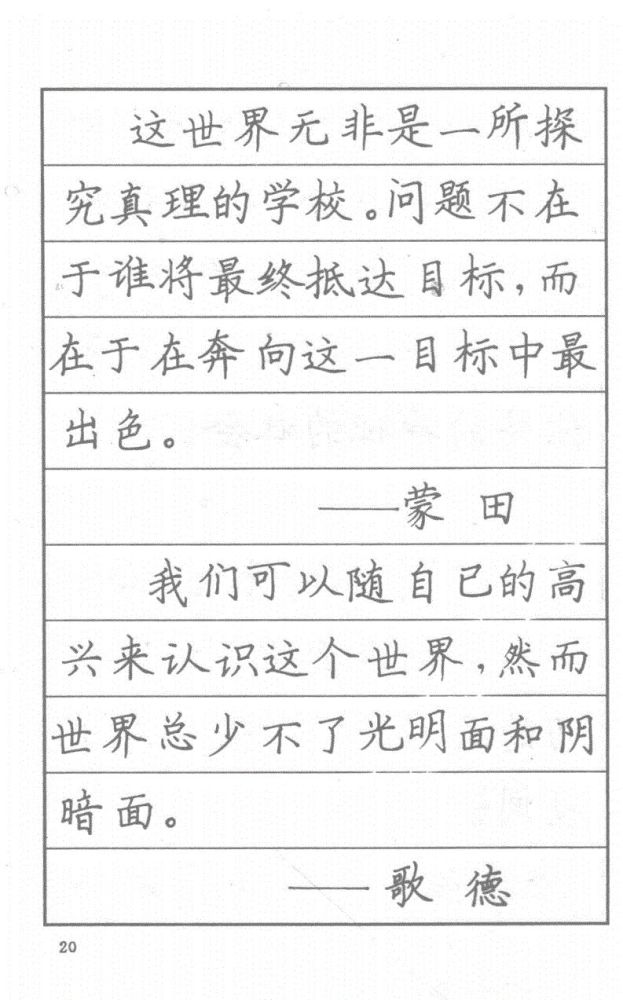 这世界无非是一所探
究真理的学校。问题不在
于谁将最终抵达目标,而
在于在奔向这一目标中最
出色。
——蒙田
我们可以随自己的高
兴来认识这个世界,然而
世界总少不了光明面和阴
暗面。
——歌德
20